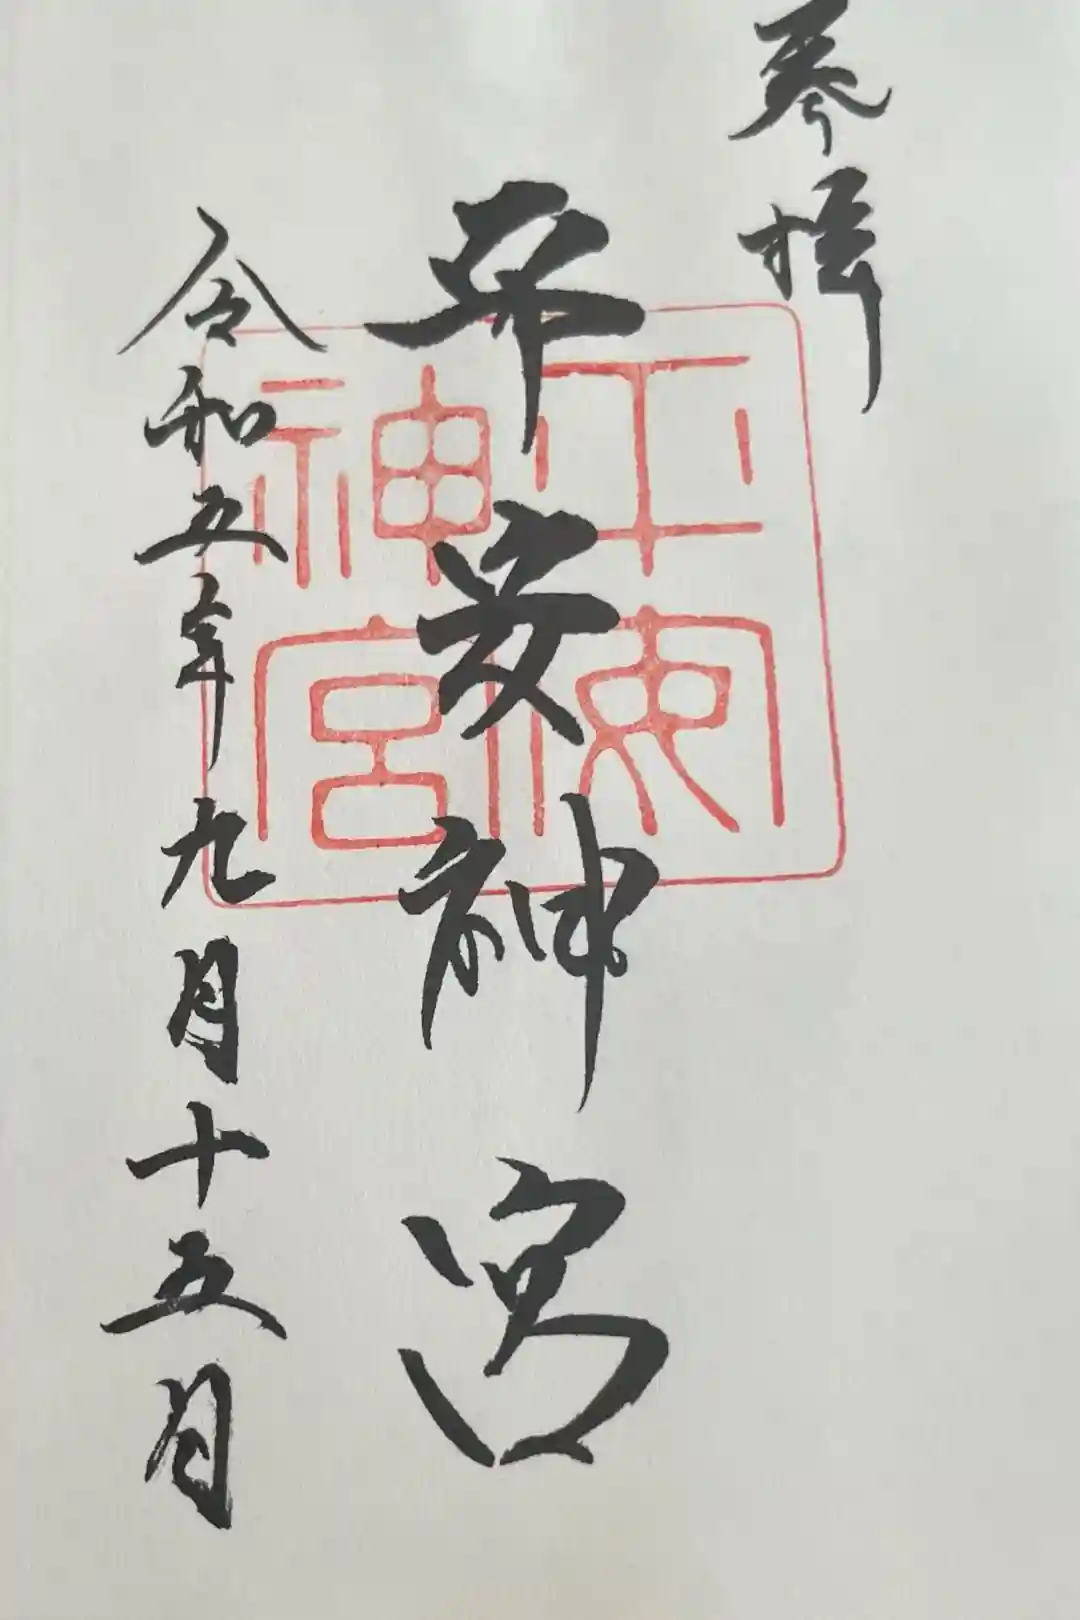 奉拝
平安神宮
平安神宮
令和五年九月十五日